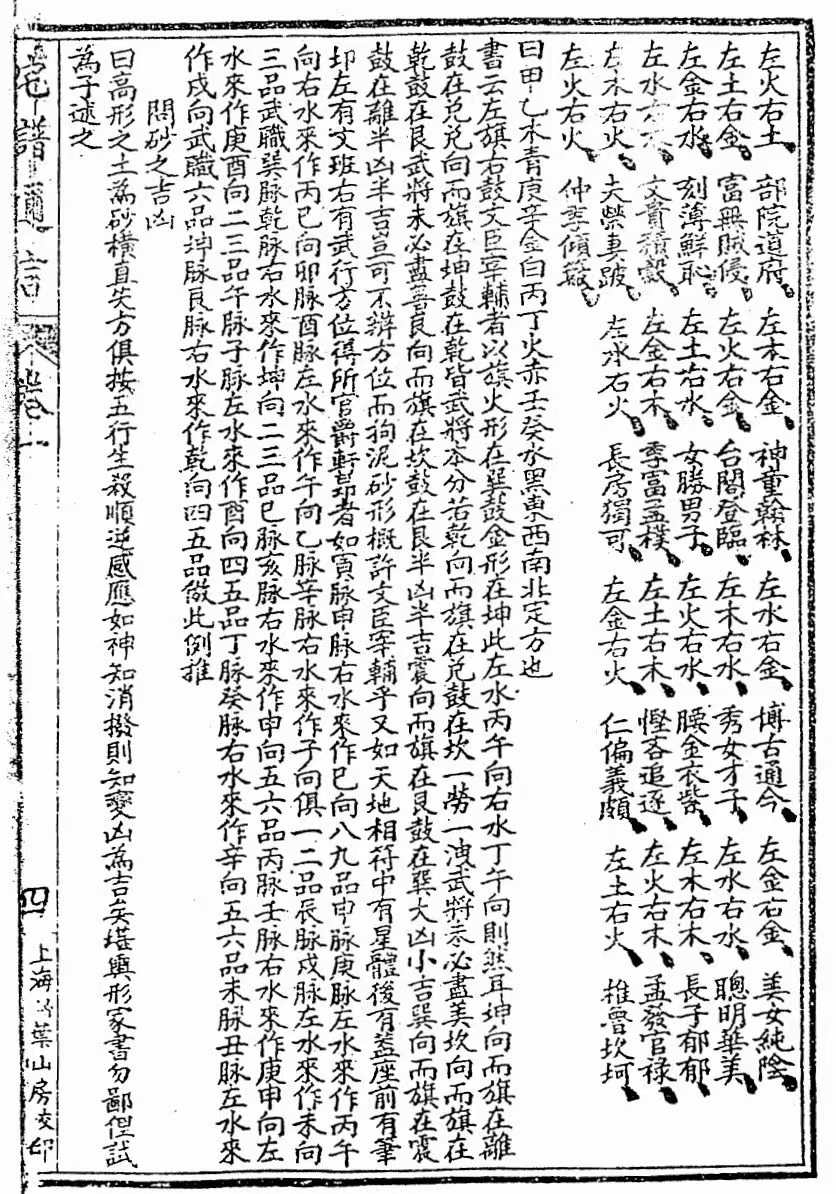 左火右土 部院道府 左木右金 神童翰林 左水右金 博古通今 左金右金 美女純陰
左土右金 富無賊侵 左火右金 台閣登臨 左木右水 秀女才子 左水右水 聰明華美
左金右水 刻薄鮮恥 左土右水 女勝男子 左火右水 腰金衣紫 左木右木 長子郁郁
左水右木 文貴積穀 左金右木 季富孟樸 左土右木 慳吝追逐 左火右木 孟發官祿
左木右火 夫榮妻跛 左水右火 長房獨可 左金右火 仁偏義頗 左土右火 椎魯坎坷
左火右火 仲季傾
曰甲乙木青庚辛金白丙丁火赤壬癸水黑東西南北定方也
書云左旗右鼓文臣宰輔者以旗火形在巽鼓金形在坤此左水丙午向右水丁午向則然耳坤向而旗在離
鼓在兌兌向而旗在坤鼓在乾皆武將本分若乾向而旗在兌鼓在坎一勞一洩武將未必盡美坎向而旗在
乾鼓在艮武將未必盡善艮向而旗在坎鼓在艮半凶半吉震向而旗在艮鼓在巽大凶小吉巽向而旗在震
鼓在離半凶半吉豈可不辨方位而拘泥砂形概許文臣宰輔乎又如天地相符中有星體後有蓋座前有筆
左有文班右有武行方位得所官爵軒昂者如寅脉申脉右水來作巳向八九品申脉庚脉左水來作丙午
向右水來作丙巳向卯脉酉脉左水來作午向乙脉辛脉右水來作子向俱一二品辰脉戌脉左水來作未向
三品武職巽脉乾脉右水來作坤向二三品巳脉亥脉右水來作申向五六品丙脉壬脉右水來作庚申向左
水來作庚酉向二三品午脉子脉左水來作酉向四五品丁脉癸脉右水來作辛向五六品未脉丑脉左水來
作戌向武職六品坤脉艮脉右水來作乾向四五品倣此例推
問砂之吉凶
曰高形之土為砂橫直失方俱按五行生殺順逆感應如神知消撥則知變凶為吉矣堪輿形家書勿鄙俚試
為子述之
四
上海 葉山房 印